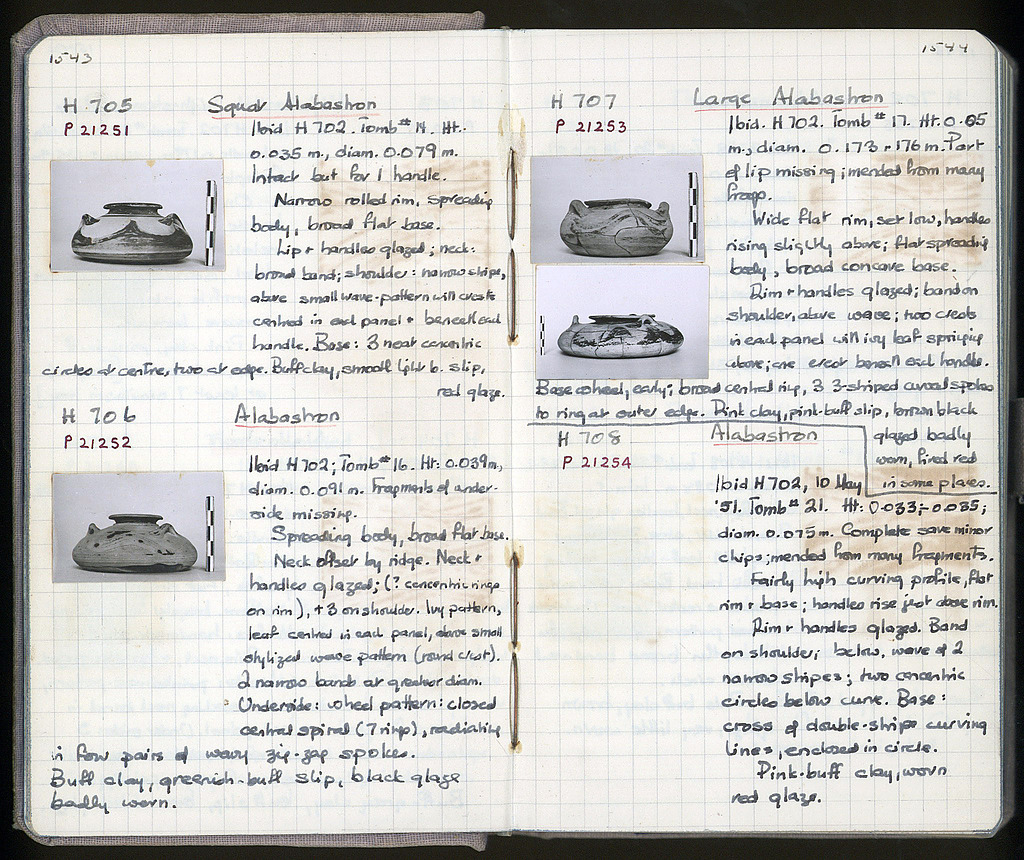 1543
H 705 Squat Alabastron
P 21251
Ibid H 702. Tomb # 14. Ht.
0.035 m., diam. 0.079 m.
Intact but for 1 handle.
Narrow rolled rim, spreading
body, broad flat base.
Lip + handles glazed; neck:
broad band; shoulder: narrow stripe,
above small wave-pattern with crests
centred in each panel + beneath each
handle. Base: 3 neat concentric
circles at centre, two at edge. Buff clay, smooth light b. slip,
red glaze.
H 706 Alabastron
P 21252
Ibid H 702; Tomb # 16. Ht: 0.039 m.,
diam. 0.091 m. Fragments of under-
side missing.
Spreading body, broad flat base.
Neck offset by ridge. Neck +
handles glazed; (? concentric rings
on rim), + 3 on shoulder. Ivy pattern,
leaf centred in each panel, above small
stylized wave pattern (round crest).
2 narrow bands at greatest diam.
Underside: wheel pattern: closed
central spiral (7 rings), radiating
in four pairs of wavy zig-zag spokes.
Buff clay, greenish-buff slip, black glaze
badly worn.
1544
H 707 Large Alabastron
P 21253
Ibid. H 702. Tomb # 17. Ht. 0.085
m., diam. 0.173-176 m. Part
of lip missing; mended from many
frags.
Wide flat rim, set low, handles
rising slightly above; flat spreading
body, broad concave base.
Rim + handles glazed; band on
shoulder, above wave; two crests
in each panel with ivy leaf springing
above; one crest beneath each handle.
Base wheel, early; broad central ring, 3 3-striped curved spokes
to ring at outer edge. Pink clay, pink-buff slip, brown black
glazed badly
worn, fired red
in some places.
H 708 Alabastron
P 21254
Ibid H 702, 10 May
'51. Tomb # 21. Ht: 0.033-0.035;
diam. 0.075 m. Complete save minor
chips; mended from many fragments.
Fairly high curving profile, flat
rim + base; handles rise just above rim.
Rim + handles glazed. Band
on shoulder; below, wave of 2
narrow stripes; two concentric
circles below curve. Base:
cross of double-stripe curving
lines, enclosed in circle.
Pink-buff clay, worn
red glaze.